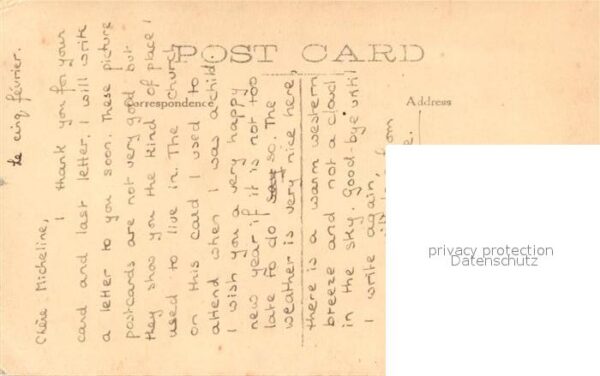 POST CARD
Correspondence
Address
le cinq février.
Chère Micheline,
I thank you for your
card and last letter. I will write
a letter to you soon. These picture
postcards are not very good but
they show you the kind of place I
used to live in. The church
on this card I used to
attend when I was a child
I wish you a very happy
new year if it is not too
late to do say so. The
weather is very nice here,
there is a warm western
breeze and not a cloud
in the sky. Good bye until
I write again, from
privacy protection
Datenschutz